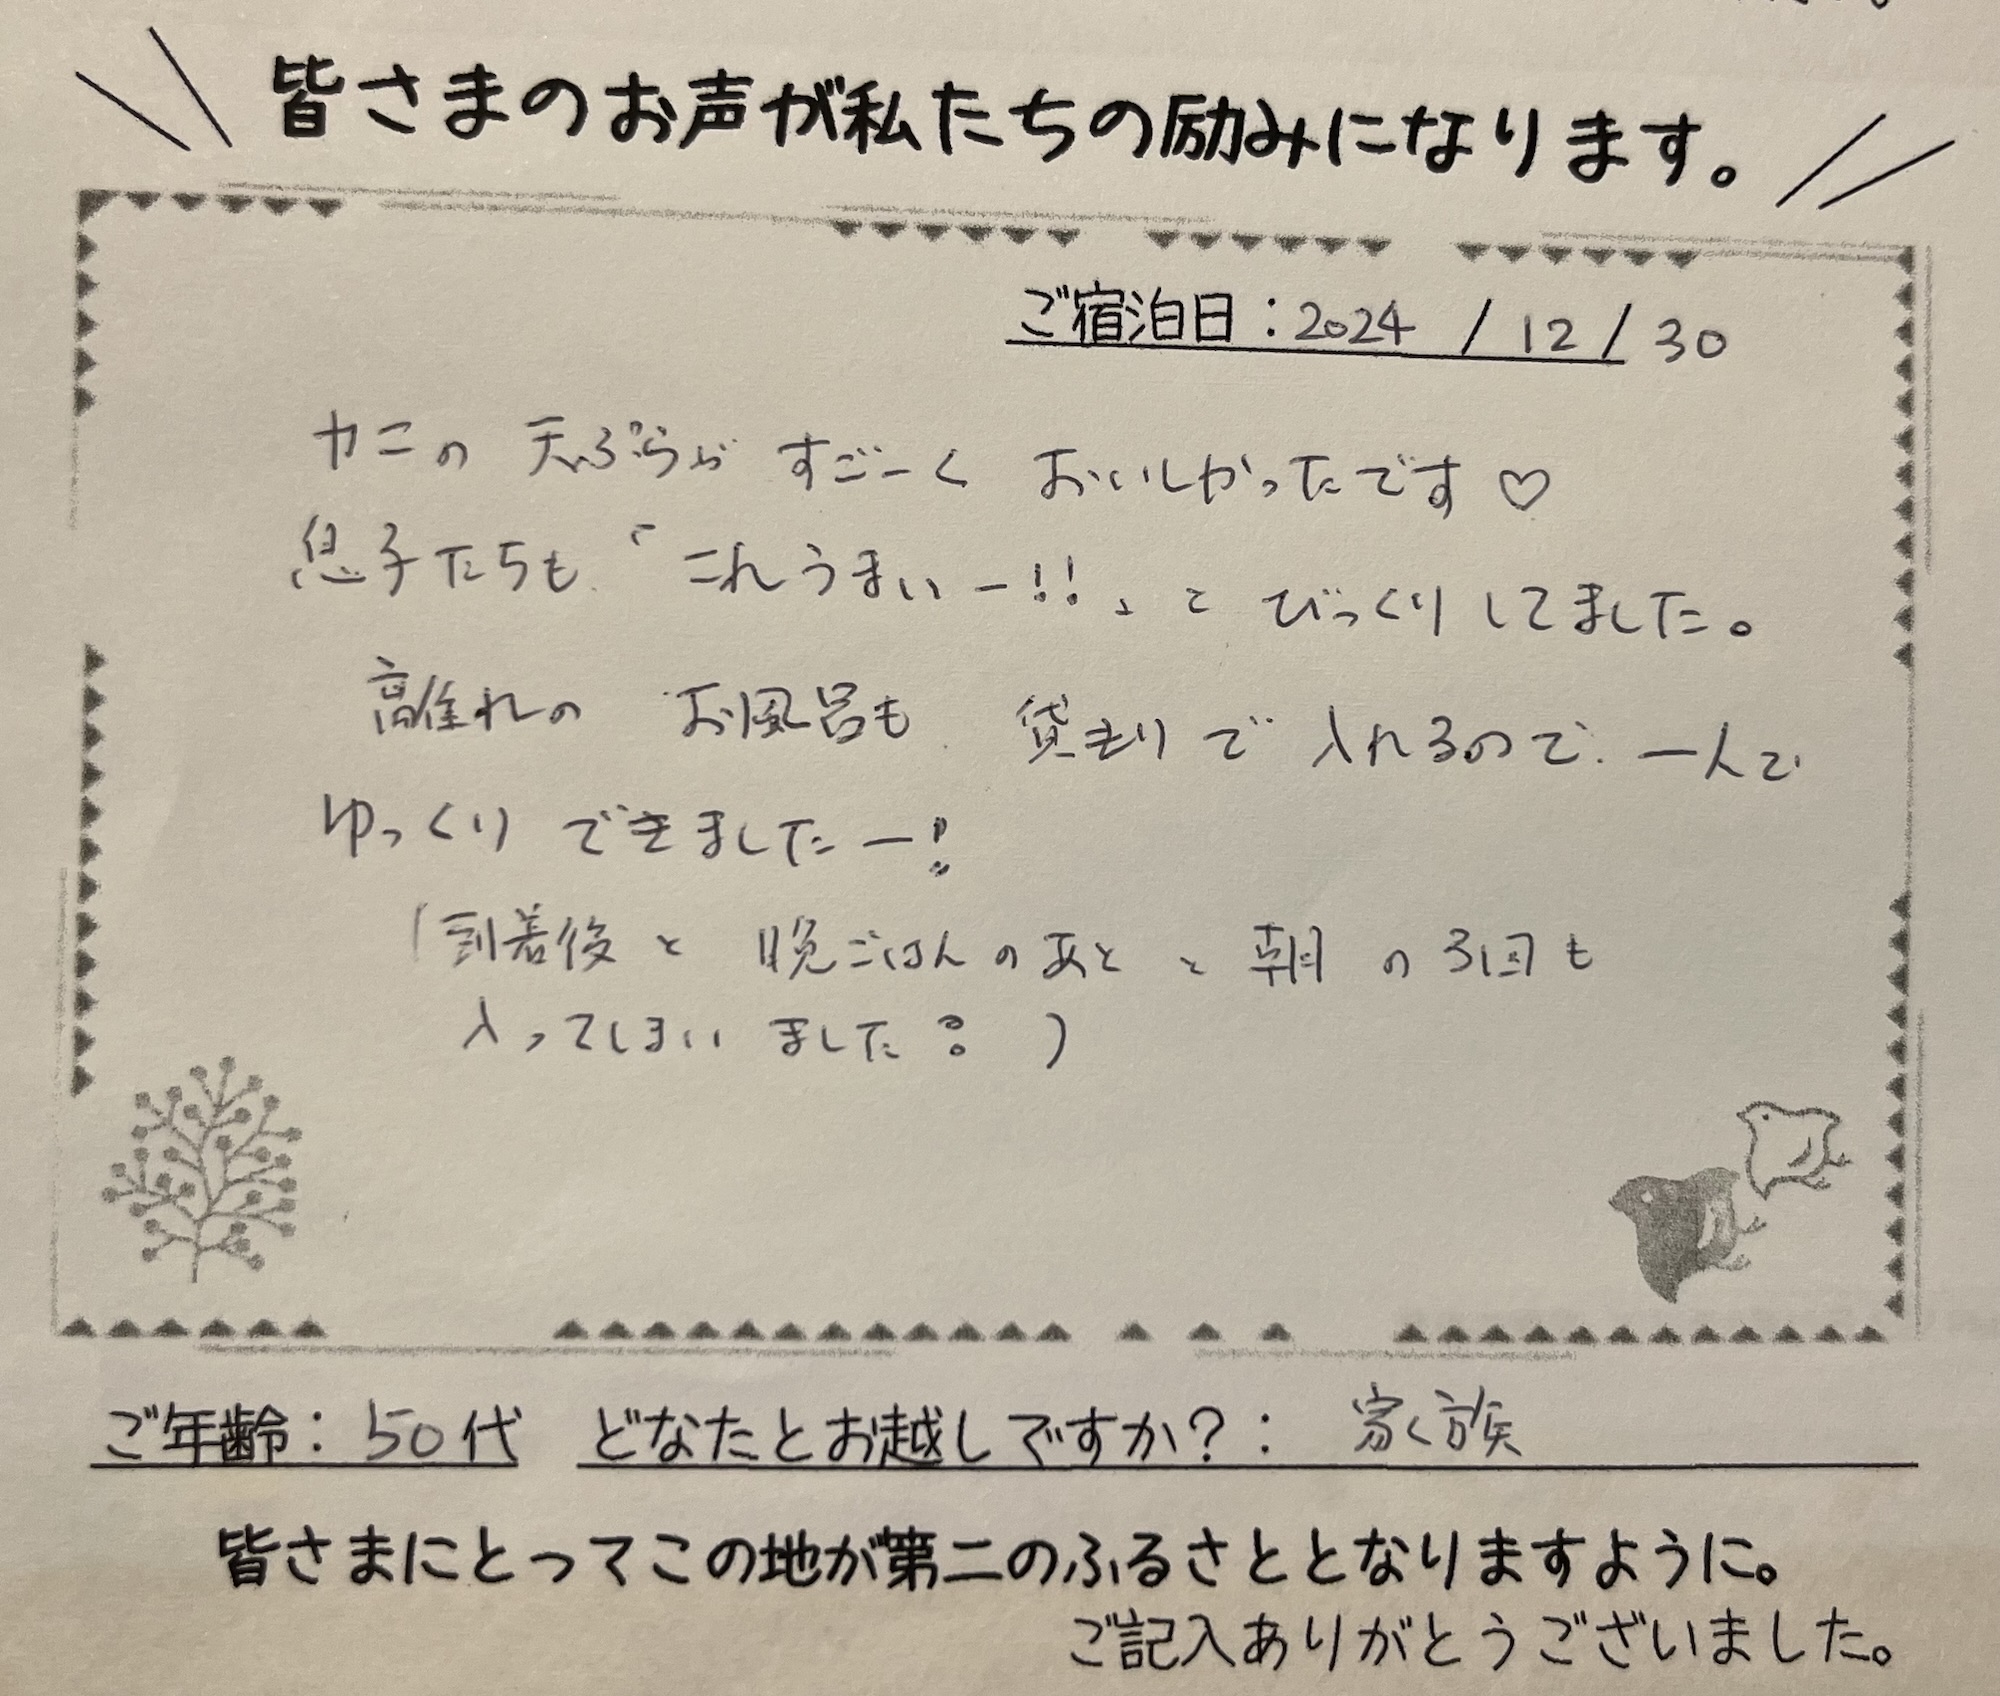 皆さまのお声が私たちの励みになります。
ご宿泊日：2024 / 12 / 30
カニの 天ぷらが すごーく おいしかったです♡
息子たちも「これうまいー!!」と びっくりしてました。
離れの お風呂も 貸切りで入れるので、一人で
ゆっくり できましたー!
(到着後と 晩ごはんのあと と 朝 の3回も
入ってしまい ました? )
ご年齢：50代 どなたとお越しですか？： 家族
皆さまにとってこの地が第二のふるさととなりますように。
ご記入ありがとうございました。